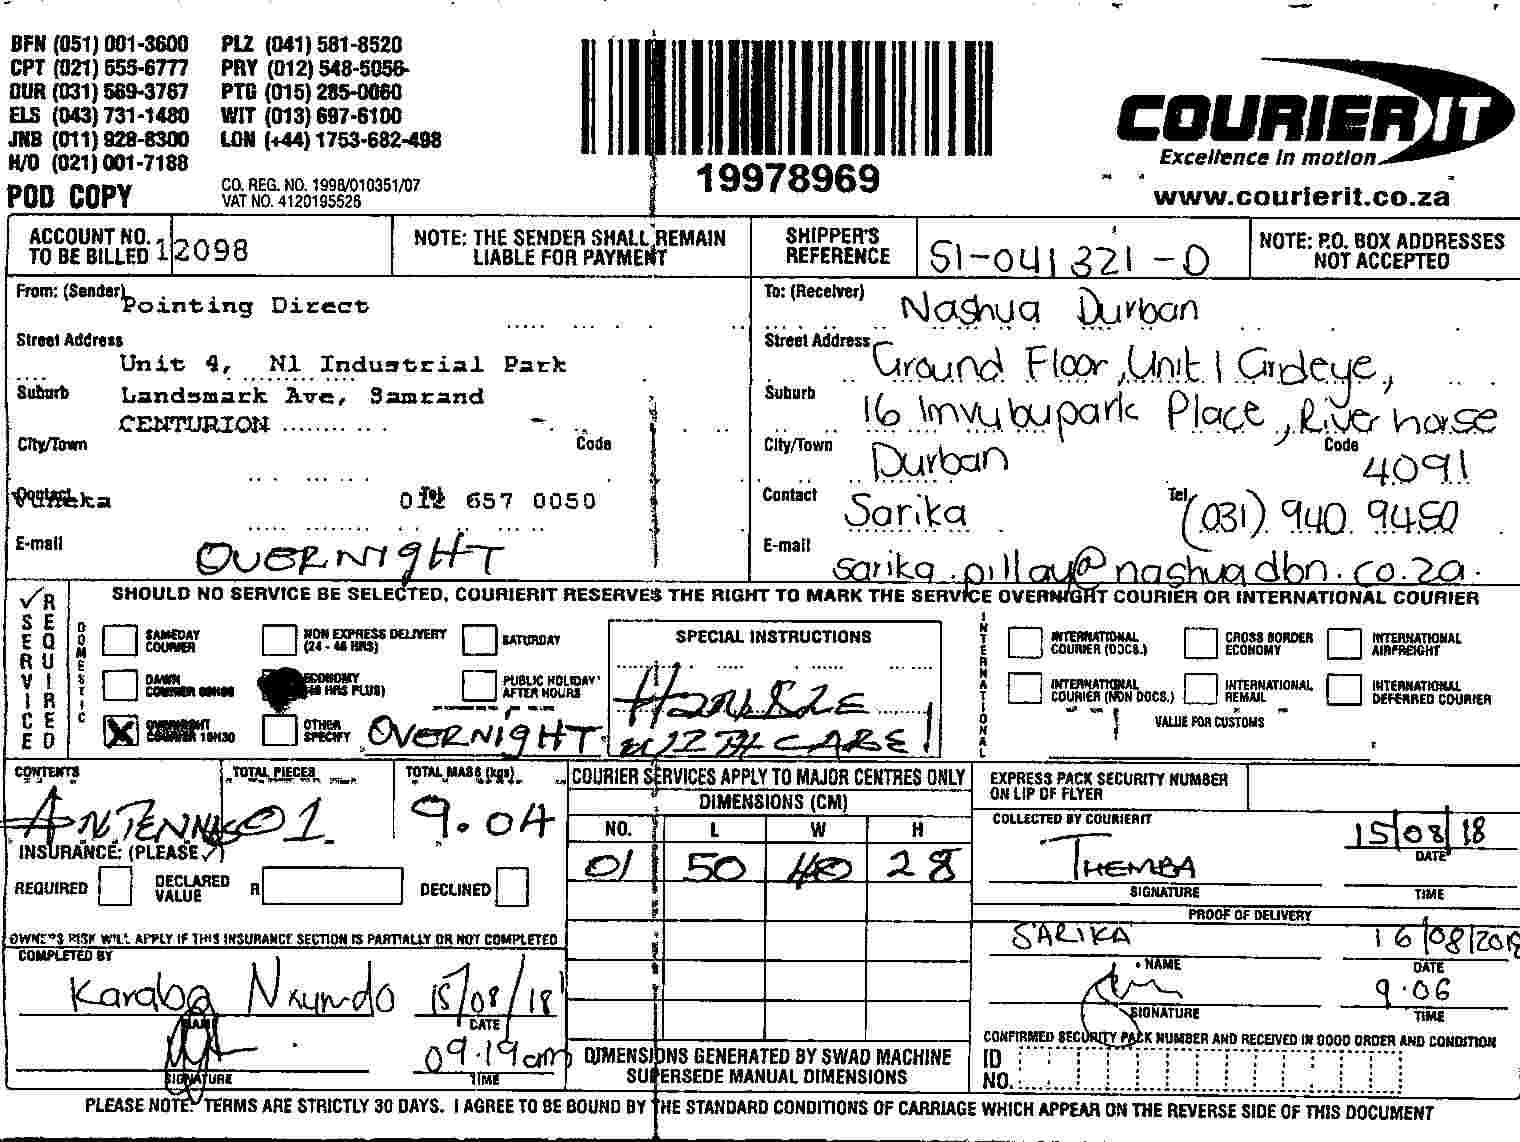 BFN (051) 001-3600 PLZ (041) 581-8520
CPT (021) 555-6777 PRY (012) 548-5056
DUR (031) 569-3767 PTG (015) 285-0060
ELS (043) 731-1480 WIT (013) 697-6100
JNB (011) 928-8300 LON (+44) 1753-682-498
H/O (021) 001-7188
POD COPY
CO. REG. NO. 1998/010351/07
VAT NO. 4120195526
19978969
COURIERIT
Excellence in motion
www.courierit.co.za
ACCOUNT NO. TO BE BILLED 12098
NOTE: THE SENDER SHALL REMAIN LIABLE FOR PAYMENT
SHIPPER'S REFERENCE SI-041321-D
NOTE: P.O. BOX ADDRESSES NOT ACCEPTED
From: (Sender) Pointing Direct
Street Address Unit 4, N1 Industrial Park
Suburb Landsmark Ave, Samrand
CENTURION
City/Town Code
Contact Tel 012 657 0050
E-mail
OVERNIGHT
To: (Receiver) Nashua Durban
Street Address Ground Floor, Unit 1
Suburb 16 Imvubupark Place, River horse
City/Town Durban Code 4091
Contact Sarika Tel (031) 940 9450
E-mail sarika.pillay@nashuadbn.co.za.
SHOULD NO SERVICE BE SELECTED, COURIERIT RESERVES THE RIGHT TO MARK THE SERVICE OVERNIGHT COURIER OR INTERNATIONAL COURIER
SERVICE REQUIRED
DOMESTIC
SAMEDAY COURIER
NON EXPRESS DELIVERY (24 - 48 HRS)
SATURDAY
DAWN COURIER
ECONOMY (48 HRS PLUS)
PUBLIC HOLIDAY AFTER HOURS
OVERNIGHT COURIER 10H30
OTHER SPECIFY OVERNIGHT
SPECIAL INSTRUCTIONS
HANDLE
WITH CARE!
INTERNATIONAL
INTERNATIONAL COURIER (DOCS.)
CROSS BORDER ECONOMY
INTERNATIONAL AIRFREIGHT
INTERNATIONAL COURIER (NON DOCS.)
INTERNATIONAL REMAIL
INTERNATIONAL DEFERRED COURIER
VALUE FOR CUSTOMS
CONTENTS TOTAL PIECES TOTAL MASS (kgs)
01 9.04
INSURANCE: (PLEASE ✓)
REQUIRED DECLARED VALUE R DECLINED
OWNER'S RISK WILL APPLY IF THIS INSURANCE SECTION IS PARTIALLY OR NOT COMPLETED
COMPLETED BY
Karabo 15/08/18
NAME DATE
09:19am
SIGNATURE TIME
COURIER SERVICES APPLY TO MAJOR CENTRES ONLY
DIMENSIONS (CM)
NO. L W H
01 50 40 28
DIMENSIONS GENERATED BY SWAD MACHINE
SUPERSEDE MANUAL DIMENSIONS
EXPRESS PACK SECURITY NUMBER
ON LIP OF FLYER
COLLECTED BY COURIERIT
THEMBA 15/08/18
DATE
SIGNATURE TIME
PROOF OF DELIVERY
SARIKA 16/08/2018
NAME DATE
9.06
SIGNATURE TIME
CONFIRMED SECURITY PACK NUMBER AND RECEIVED IN GOOD ORDER AND CONDITION
ID NO.
PLEASE NOTE: TERMS ARE STRICTLY 30 DAYS. I AGREE TO BE BOUND BY THE STANDARD CONDITIONS OF CARRIAGE WHICH APPEAR ON THE REVERSE SIDE OF THIS DOCUMENT